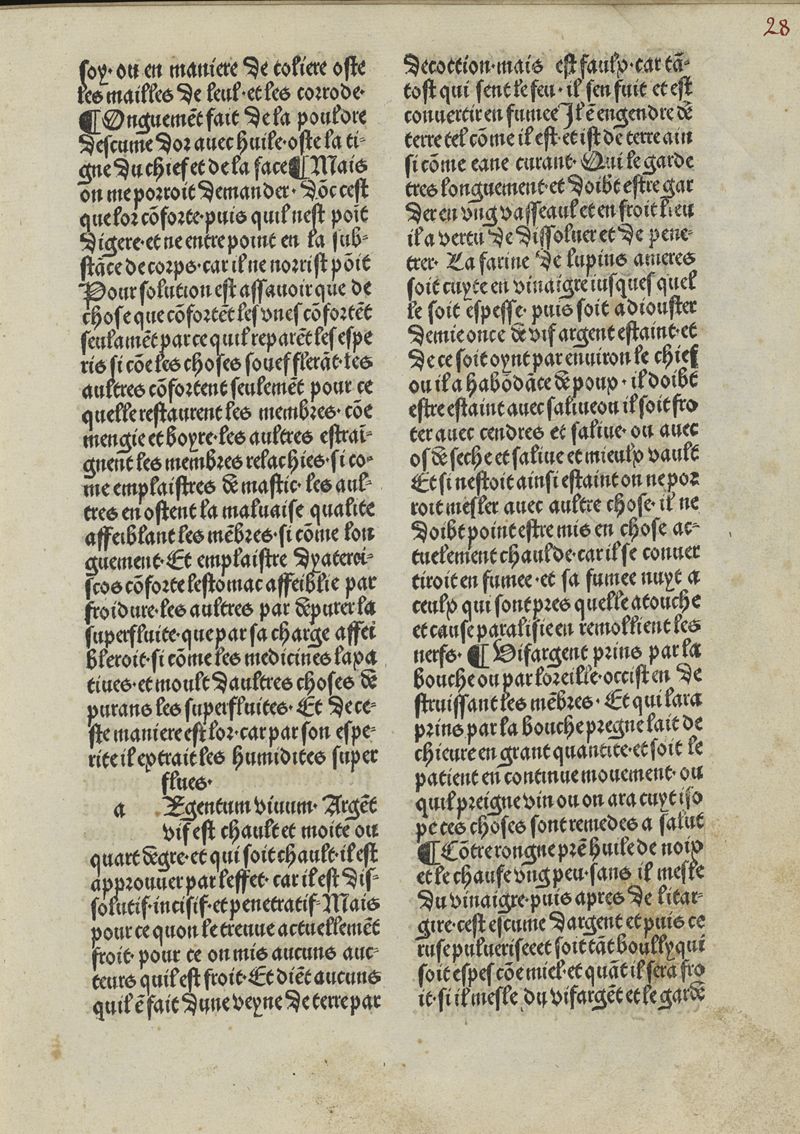 28
soy· ou en maniere de coliere oste
les mailles de leul· et les corrode·
¶ Onguemēt fait de la pouldre
descume dor auec huile· oste la ti-
gne du chief et de la face ¶ Mais
on me porroit demander· dōc cest
que lor cōforte· puis quil nest poīt
digere· et ne entre point en la sub-
stāce de corps· car il ne norrist pōit
Pour solution est assauoir que de
chose que cōfortēt les vnes cōfortēt
seulamēt par ce quil reparēt les espe
ris si cōe les choses souef flerāt· les
aultres cōfortent seulemēt pour ce
quelle restaurent les membres· cōe
mengie et boyre· les aultres estraī-
gnent les membres relachies· si co-
me emplaistres de mastic· les aul-
tres en ostent la maluaise qualite
affeiblant les mēbres· si cōme lon
guement· Et emplaistre dyaterei-
scos cōforte lestomac affeiblie par
froidure· les aultres par depurer la
superfluite· que par sa charge affei
bleroit· si cōme les medicines lapa
tiues· et moult daultres choses de
purans les superfluites· Et de ce-
ste maniere est lor· car par son espe-
rite il extrait les humidites super
flues·
a Egentum viuum· Argēt
vif est chault et moite ou
quart degre· et qui soit chault· il est
approuuer par leffet· car il est dis-
solutif· incisif· et penetratif· Mais
pour ce quon le treuue actuellemēt
froit· pour ce on mis aucuns auc-
teurs quil est froit· Et diēt aucuns
quil ē fait dune veyne de terre par
decoction· mais est faulx· car tā-
tost qui sent le feu· il sen fuit et est
conuertir en fumee Il ē engendre de
terre tel cōme il est· et ist de terre ain
si cōme eaue curant· Qui le garde
tres longuement· et doibt estre gar
der en vng vasseaul et en froit lieu
il a vertu de dissoluer et de pene-
trer· La farine de lupins ameres
soit cuyte en vinaigre iusques quel
le soit espesse· puis soit adiouster
demie once de vif argent estaint· et
de ce soit oynt par enuiron le chief
ou il a habōdāce de poux· il doibt
estre estaint auec saliue ou il soit fro
ter auec cendres et saliue· ou auec
os de seche et saliue et mieulx vault
Et si nestoit ainsi estaint on ne por
roit mesler auec aultre chose· il ne
doibt point estre mis en chose ac-
tuelement chaulde· car il se conuer
tiroit en fumee· et sa fumee nuyt a
ceulx qui sont pres quelle atouche
et cause paralisie en remollient les
nerfs· ¶ Vif argent prins par la
bouche ou par loreille· occist en de
struissant les mēbres· Et qui lara
prins par la bouche pregne lait de
chieure en grant quantite· et soit le
patient en continue mouement· ou
quil preigne vin ou on ara cuyt iso
pe ces choses sont remedes a salut
¶ Cōtre rongne prē huile de noix
et le chaufe vng peu· sans il mesle
du vinaigre· puis apres de litar-
gire· cest escume dargent et puis ce
ruse pulueriseeet soit tāt boully qui
soit espes cōe miel· et quāt il sera fro
it· si il mesle du vif argēt et le garde